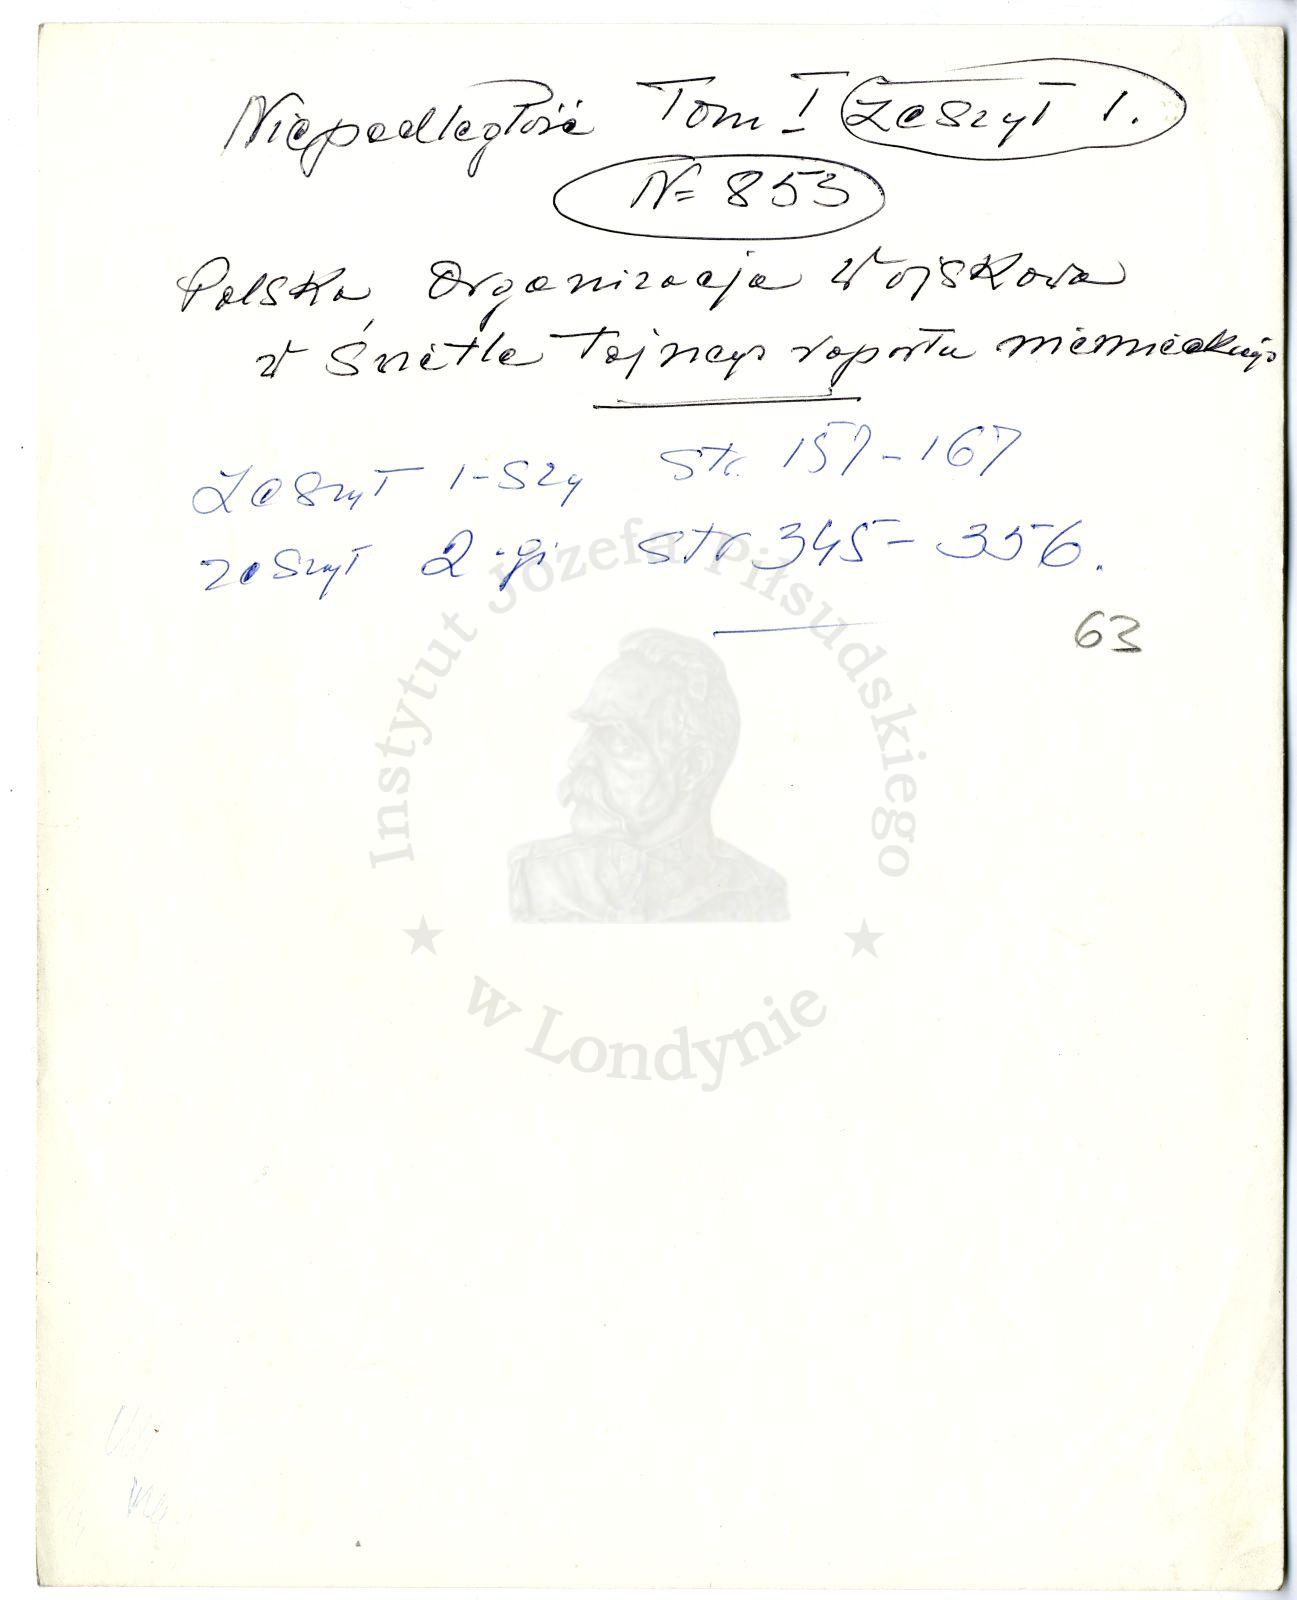 Niepodległość Tom I Zeszyt 1.
N= 853
Polska Organizacja Wojskowa
w świetle tajnego raportu niemieckiego
Zeszyt 1-szy str. 157-167
zeszyt 2-gi str 345-356.
63
Instytut Józefa Piłsudskiego
w Londynie